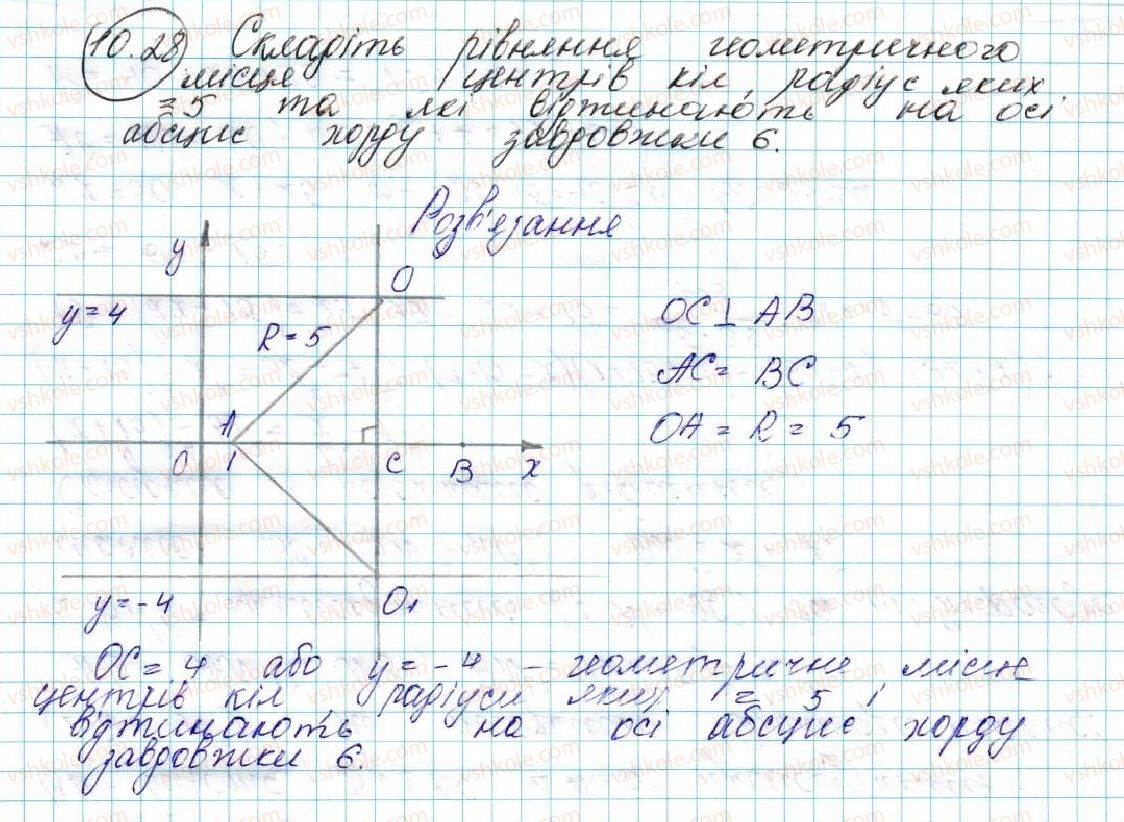 10.28 Складіть рівняння геометричного
місце центрів кіл, радіус яких
= 5 та які відтинають на осі
абсцис хорду завдовжки 6.
Розв'язання
y
O
y = 4
R = 5
OC ⊥ AB
AC = BC
OA = R = 5
A
O
1
C
B
x
y = -4
O₁
OC = 4 або y = -4 - геометричне місце
центрів кіл, радіуси яких = 5 і
відтинають на осі абсцис хорду
завдовжки 6.